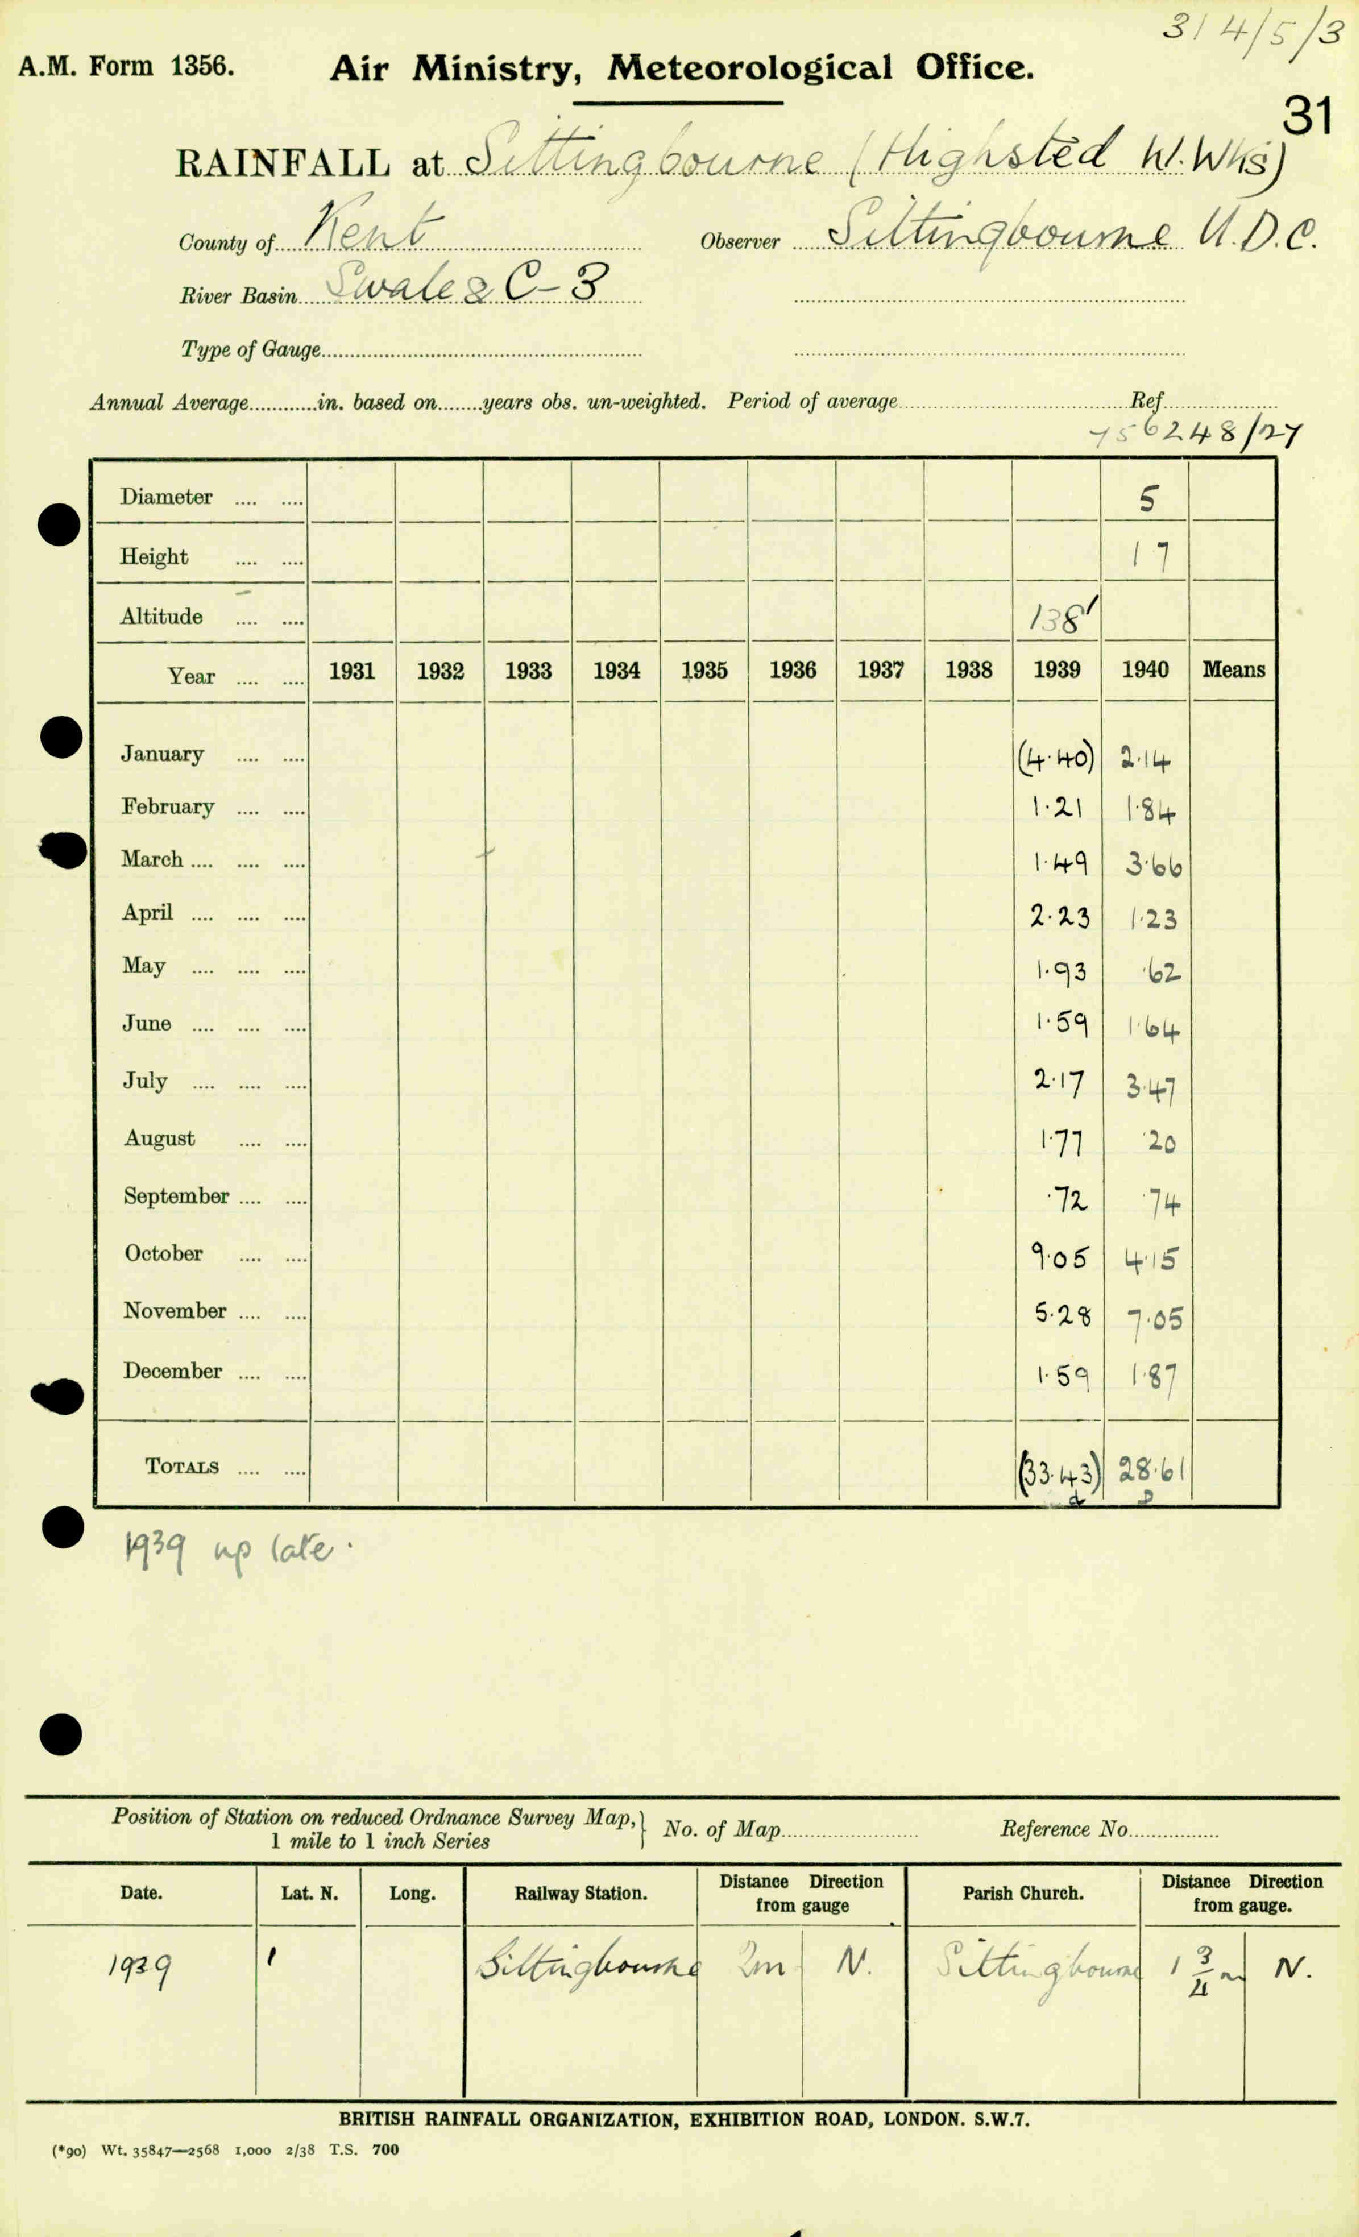 314/5/3
A.M. Form 1356. Air Ministry, Meteorological Office.
31
RAINFALL at Sittingbourne (Highsted W. Wks)
County of Kent Observer Sittingbourne U.D.C.
River Basin Swale & C-3
Type of Gauge
Annual Average in. based on years obs. un-weighted. Period of average Ref
756248/27
Diameter 5
Height 17
Altitude 138'
Year 1931 1932 1933 1934 1935 1936 1937 1938 1939 1940 Means
January (4.40) 2.14
February 1.21 1.84
March 1.49 3.66
April 2.23 1.23
May 1.93 .62
June 1.59 1.64
July 2.17 3.47
August 1.77 .20
September .72 .74
October 9.05 4.15
November 5.28 7.05
December 1.59 1.87
TOTALS (33.43) 28.61
1939 up late.
Position of Station on reduced Ordnance Survey Map, 1 mile to 1 inch Series } No. of Map Reference No.
Date. Lat. N. Long. Railway Station. Distance Direction from gauge Parish Church. Distance Direction from gauge.
1939 Sittingbourne 2m N. Sittingbourne 1 3/4 m N.
BRITISH RAINFALL ORGANIZATION, EXHIBITION ROAD, LONDON. S.W.7.
(*90) Wt. 35847—2568 1,000 2/38 T.S. 700